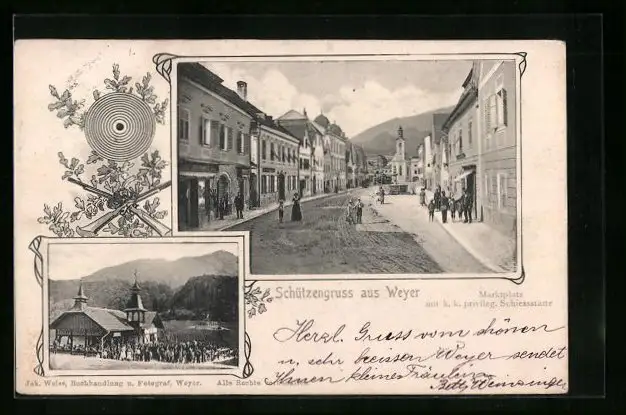 Schützengruss aus Weyer
Marktplatz
mit k. k. privileg. Schiessstätte
Herzl. Gruss vom schönen
u. sehr heissen Weyer sendet
Ihnen kleines Fräulein
Jak. Weiss, Buchhandlung u. Fotograf, Weyer. Alle Rechte